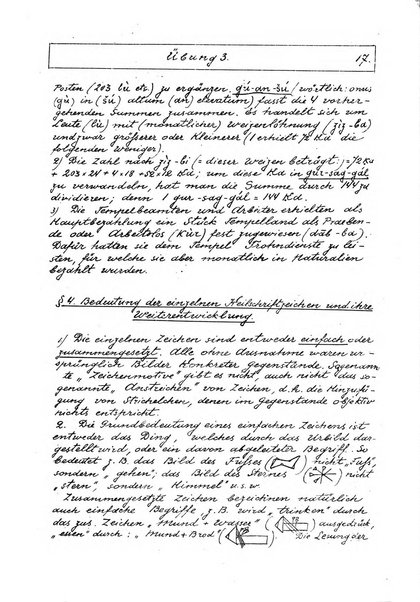 Übung 3.
17.
Posten (203 lù etc.) zu ergänzen. gú-an-šú / wörtlich: onus
(gù) in (šú) altum (an) elevatum) fasst die 4 vorher-
gehenden Summen zusammen. Es handelt sich um
Leute (lù) mit (monatlicher) Weizenlöhnung (ziz-ba)
und zwar größerer oder Kleinerer (1 erhielt ½ Ka die
folgenden weniger).
2) Die Zahl nach ziz-bi (= dieser Weizen beträgt:)
+ 203 + 24 + 4 + 18 um diese Ka in gur-sag-gál
zu verwandeln, hat man die Summe durch 144 zu
dividieren; denn 1 gur-sag-gál = 144 Ka.
3) Die Tempelbeamten und Arbeiter erhielten als
Hauptbezahlung ein Stück Tempelland als Praeben-
de oder Arbeitslos (Kùr) fest zugewiesen (dab-ba).
Dafür hatten sie dem Tempel Frohndienste zu lei-
sten, für welche sie aber monatlich in Naturalien
bezahlt wurden.
§ 4. Bedeutung der einzelnen Keilschriftzeichen und ihre
Weiterentwicklung.
1) Die einzelnen Zeichen sind entweder einfach oder
zusammengesetzt. Alle ohne Ausnahme waren ur-
sprünglich Bilder Konkreter Gegenstände. Sogenann-
te „Zeichenmotive" gibt es nicht, auch nicht das so-
genannte „Anstreichen" von Zeichen, d.h. die Hinzufü-
gung von Strichelchen, denen im Gegenstande objektiv
nichts entspricht.
2. Die Grundbedeutung eines einfachen Zeichens ist
entweder das Ding, welches durch das Urbild dar-
gestellt wird, oder ein davon abgeleiteter Begriff. So
bedeutet z.B. das Bild des Fußes ( ) nicht „Fuß",
sondern „gehen"; das Bild des Sternes ( ) nicht
„stern", sondern „Himmel" u.s.w.
Zusammengesetzte Zeichen bezeichnen natürlich
auch einfache Begriffe, z.B. wird „trinken" durch
das zus. Zeichen „Mund + Wasser" ( ) ausgedrück,
„essen" durch: „Mund + Brod" ( ). Die Lesung der